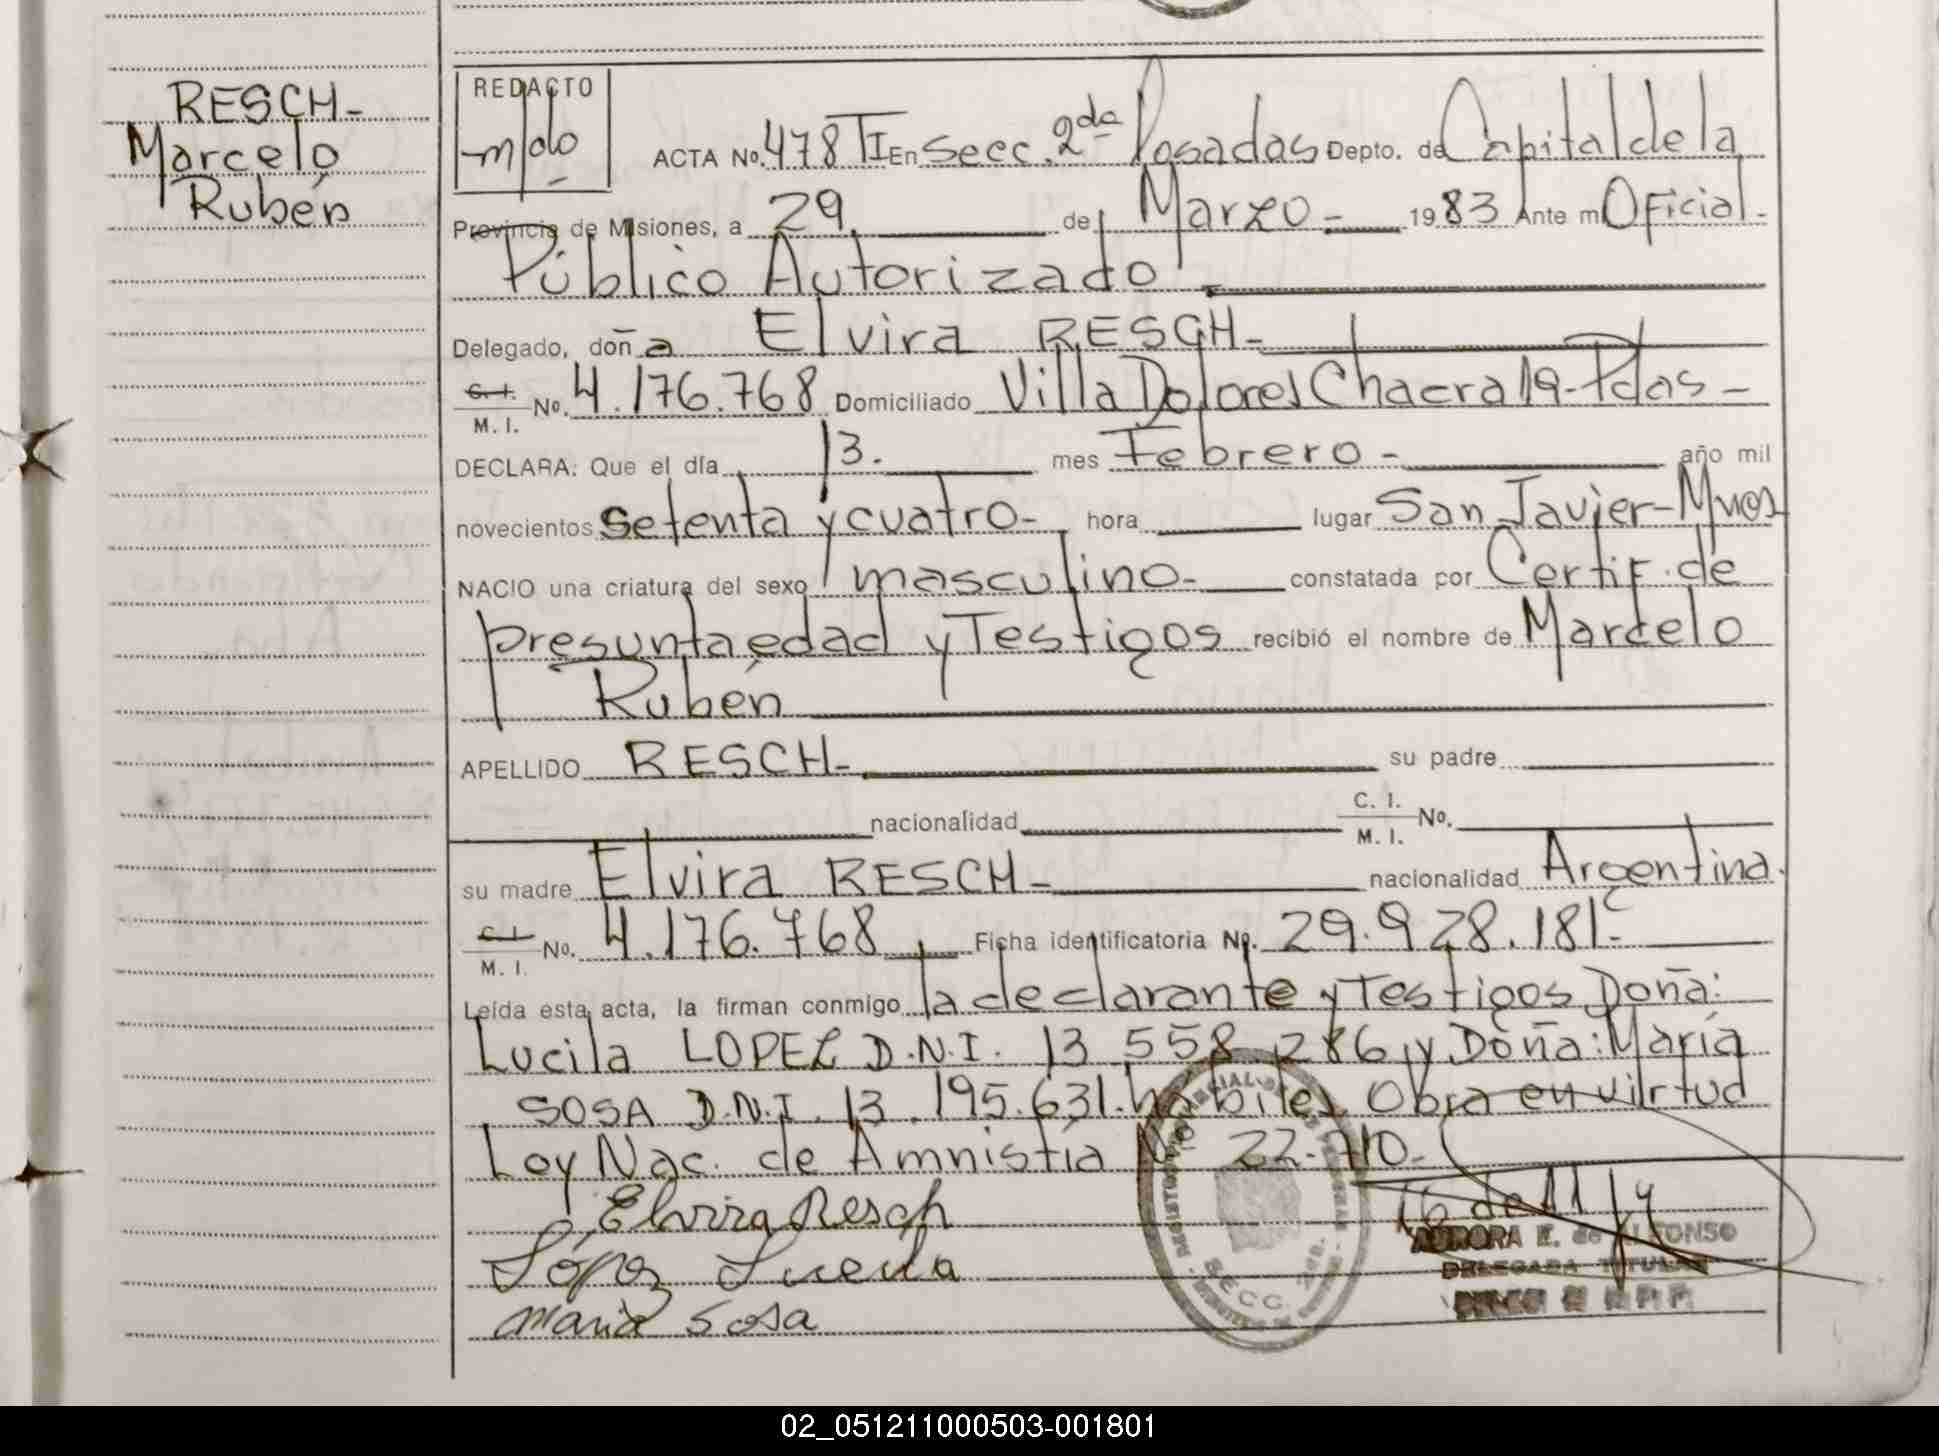 RESCH-
Marcelo
Rubén
REDACTO
m/do
ACTA No. 478 TI En Secc. 2da Posadas Depto. de Capital de la
Provincia de Misiones, a 29. de Marzo - 1983 Ante mi Oficial -
Público Autorizado
Delegado, doña Elvira RESCH-
C. I.
M. I.
No. 4.176.768 Domiciliado Villa Dolores Chacra 19-Pdas-
DECLARA: Que el día 13. mes Febrero - año mil
novecientos setenta y cuatro- hora lugar San Javier-Mnes
NACIO una criatura del sexo masculino- constatada por Certif. de
presunta edad y Testigos recibió el nombre de Marcelo
Rubén
APELLIDO RESCH- su padre
nacionalidad C. I.
M. I.
No.
su madre Elvira RESCH- nacionalidad Argentina.
C. I.
M. I.
No. 4.176.768 Ficha identificatoria No. 29.928.181-
Leída esta acta, la firman conmigo la declarante y Testigos Doña:
Lucila LOPEZ D.N.I. 13.558.286 y Doña: María
SOSA D.N.I. 13.195.631. hábiles Obra en virtud
Ley Nac. de Amnistía No 22.710.-
Elvira Resch
López Lucila
María Sosa
SECC. 2da.
AURORA E. de ALFONSO
DELEGADA TITULAR
02_051211000503-001801